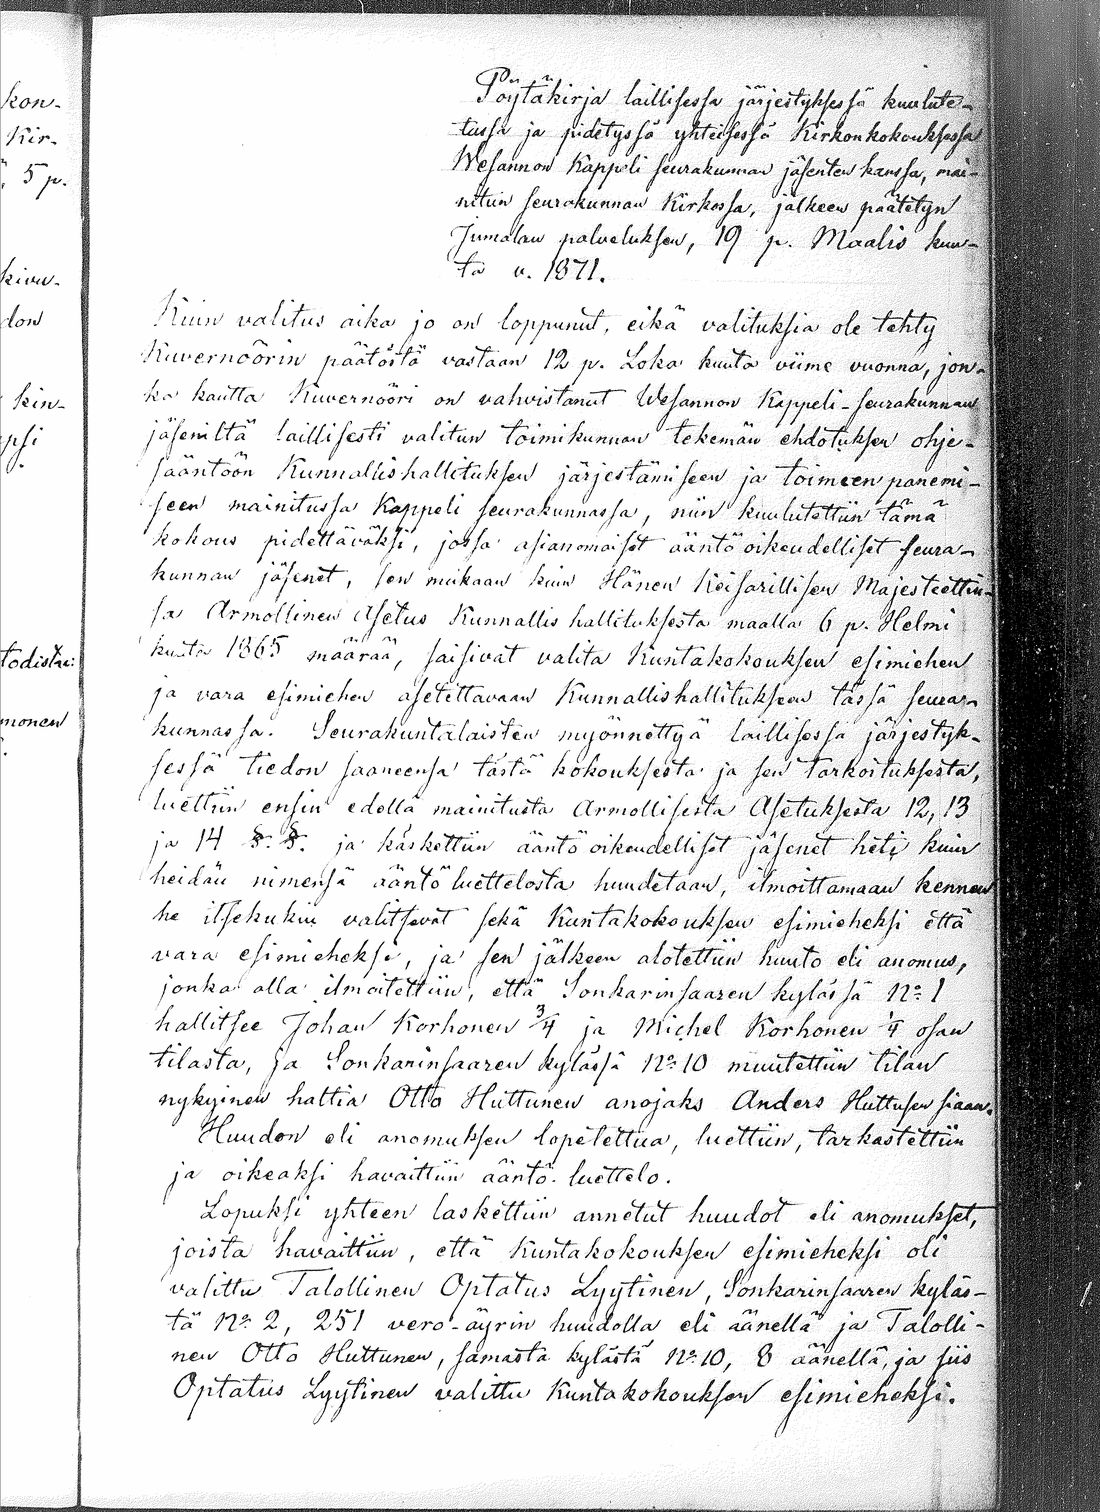 kon-
Kir-
5 p.
kivu-
don
kin-
psi
todistaa:
monen
Pöytäkirja laillisessa järjestyksessä kuulute-
tussa ja pidetyssä yhteisessä Kirkonkokouksessa
Wesannon Kappeli seurakunnan jäsenten kanssa, mai-
nitun seurakunnan Kirkossa, jälkeen päätetyn
Jumalan palveluksen, 19 p. Maalis kuu-
ta v. 1871.
Kuin valitus aika jo on loppunut, eikä valituksia ole tehty
Kuvernöörin päätöstä vastaan 12 p. Loka kuuta viime vuonna, jon-
ka kautta Kuvernööri on vahvistanut Wesannon Kappeli-seurakunnan
jäseniltä laillisesti valitun toimikunnan tekemän ehdotuksen ohje-
sääntöön Kunnallishallituksen järjestämiseen ja toimeen panemi-
seen mainitussa Kappeli seurakunnassa, niin kuulutettiin tämä
kokous pidettäväksi, jossa asianomaiset ääntö oikeudelliset seura-
kunnan jäsenet, sen mukaan kuin Hänen Keisarillisen Majesteettin-
sa Armollinen Asetus Kunnallishallituksesta maalla 6 p. Helmi
kuuta 1865 määrää, saisivat valita Kuntakokouksen esimiehen
ja vara esimiehen asetettavaan Kunnallishallitukseen tässä seura-
kunnassa. Seurakuntalaisten myönnettyä laillisessa järjestyk-
sessä tiedon saaneensa tästä kokouksesta ja sen tarkoituksesta,
luettiin ensin edellä mainitusta Armollisesta Asetuksesta 12, 13
ja 14 §. §. ja käskettiin ääntö oikeudelliset jäsenet heti kuin
heidän nimensä ääntö luettelosta huudetaan, ilmoittamaan kennen
he itsekukin valitsevat sekä Kuntakokouksen esimieheksi että
vara esimieheksi, ja sen jälkeen alotettiin huuto eli anomus,
jonka alla ilmoitettiin, että Sonkarinsaaren kylässä No 1
hallitsee Johan Korhonen 3/4 ja Michel Korhonen 1/4 osan
tilasta, ja Sonkarinsaaren kylässä No 10 muutettiin tilan
nykyinen haltia Otto Huttunen anojaks Anders Huttusen siaan.
Huudon eli anomuksen lopetettua, luettiin, tarkastettiin
ja oikeaksi havaittiin ääntö-luettelo.
Lopuksi yhteen laskettiin annetut huudot eli anomukset,
joista havaittiin, että Kuntakokouksen esimieheksi oli
valittu Talollinen Optatus Lyytinen, Sonkarinsaaren kyläs-
tä No 2, 251 vero-äyrin huudolla eli äänellä ja Talolli-
nen Otto Huttunen, samasta kylästä No 10, 8 äänellä, ja siis
Optatus Lyytinen valittu Kuntakokouksen esimieheksi.